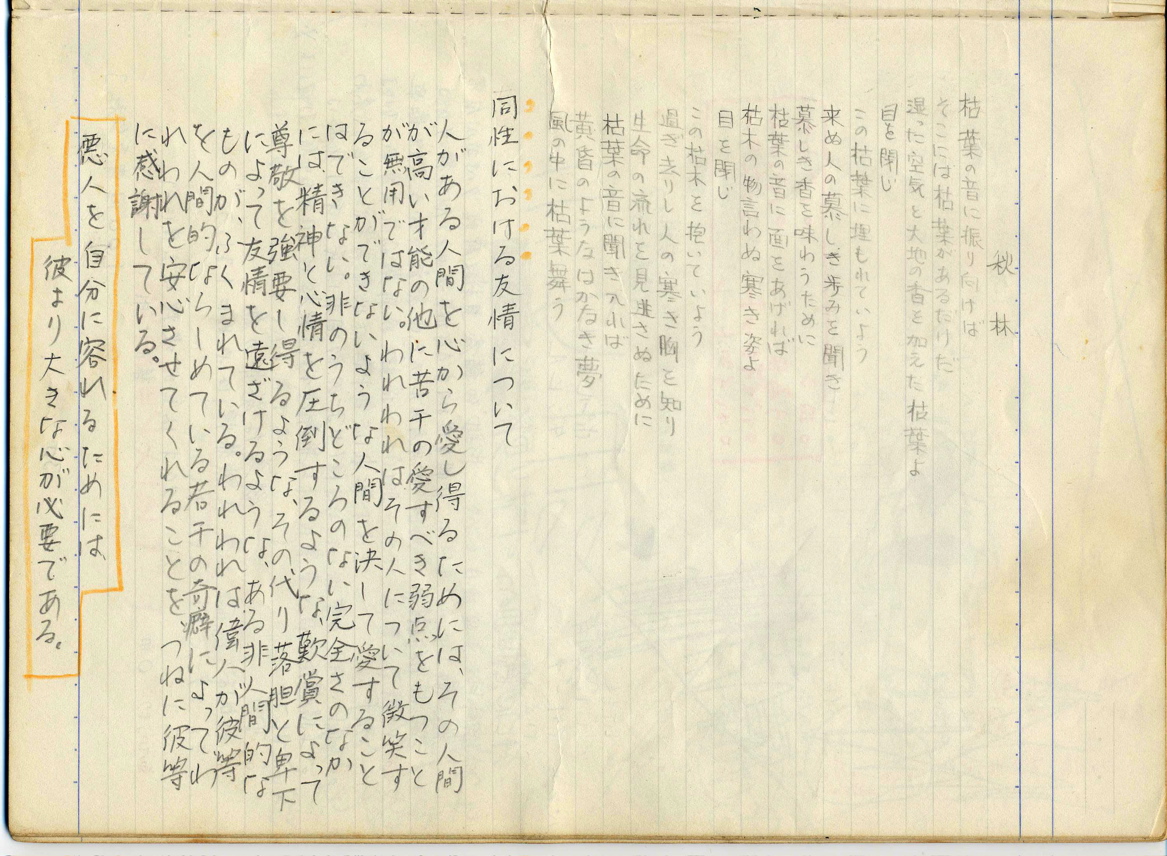 秋林
枯葉の音に振り向けば
そこには枯葉があるだけだ
湿った空気と大地の香を加えた枯葉よ
目を閉じ
この枯葉に埋もれていよう
来ぬ人の慕しき歩みを聞き
慕しき香を味わうために
枯葉の音に面をあげれば
枯木の物言わぬ寒き姿よ
目を閉じ
この枯木を抱いていよう
過ぎ去りし人の寒き胸を知り
生命の流れを見逃さぬために
枯葉の音に聞き入れば
黄昏のようなはかなき夢
風の中に枯葉舞う
同性における友情について
人がある人間を心から愛し得るためには、その人間
が高い才能の他に若干の愛すべき弱点をもつこと
が無用ではない。われわれはその人について微笑す
ることができないような人間を決して愛すること
はできない。非のうちどころのない完全さのなか
には、精神と心情を圧倒するような、歎賞によって
尊敬を強要し得るような、その代り落胆と卑下
によって友情を遠ざけるような、ある非人間的な
ものが、ふくまれている。われわれは、偉人が彼等
を人間的ならしめている若干の奇癖によってわ
れわれを安心させてくれることを、つねに彼等
に感謝している。
悪人を自分に容れるためには、
彼より大きな心が必要である。